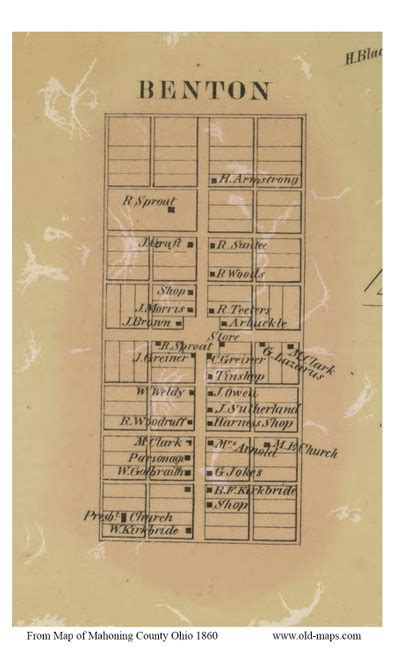 H. Blac
BENTON
H. Armstrong
R Sprout
J. Graft R. Santee
R Woods
Shop
J. Morris R. Teeters
J. Brown Arbuckle
Store
R. Sproat M. Clark
J. Greiner C. Greiner G. Lazarus
Tinshop
W. Weldy J. Owen
J. Sutherland
R. Woodruff Harness Shop
M. Clark Mrs Arnold M.E. Church
Parsonage
W. Galbraith G Jokes
B.F. Kirkbride
Shop
Presbt. Church
W. Kirkbride
From Map of Mahoning County Ohio 1860 www.old-maps.com